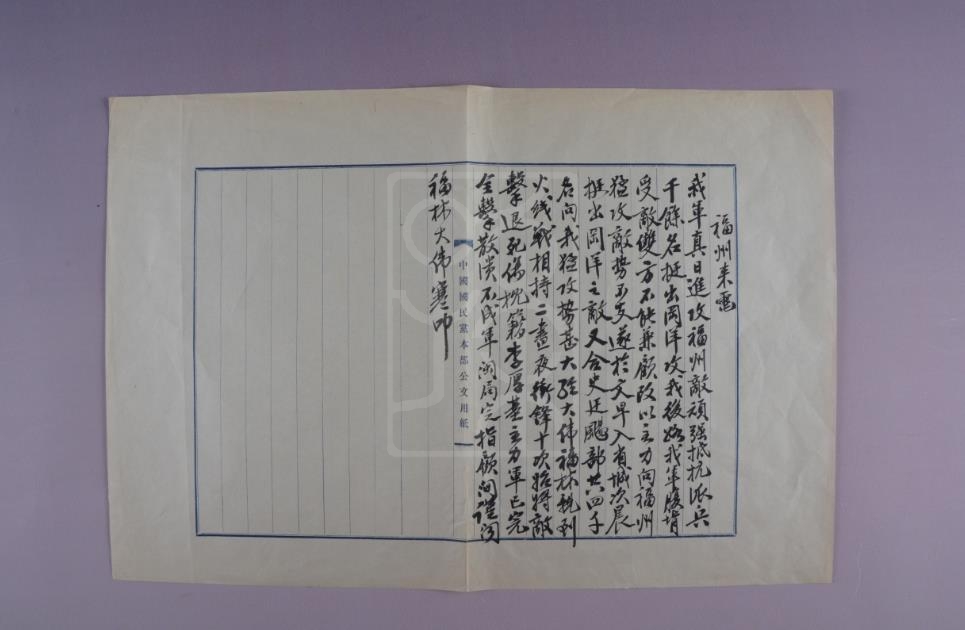 福州來電
我軍真日進攻福州敵頑强抵抗派兵
千餘名挺出岡洋攻我後路我軍腹背
受敵雙方不能兼顧改以主力向福州
猛攻敵勢不支遂於文早入省城次晨
挺出岡洋之敵又合史廷颺部共四千
名向我猛攻勢甚大經大偉福林親到
火线戰相持二晝夜衝鋒十次始將敵
擊退死傷枕籍李厚基主力軍已完
全擊散潰不成軍閩局定指顧間謹聞
福林大偉寒叩
中國國民黨本部公文用紙